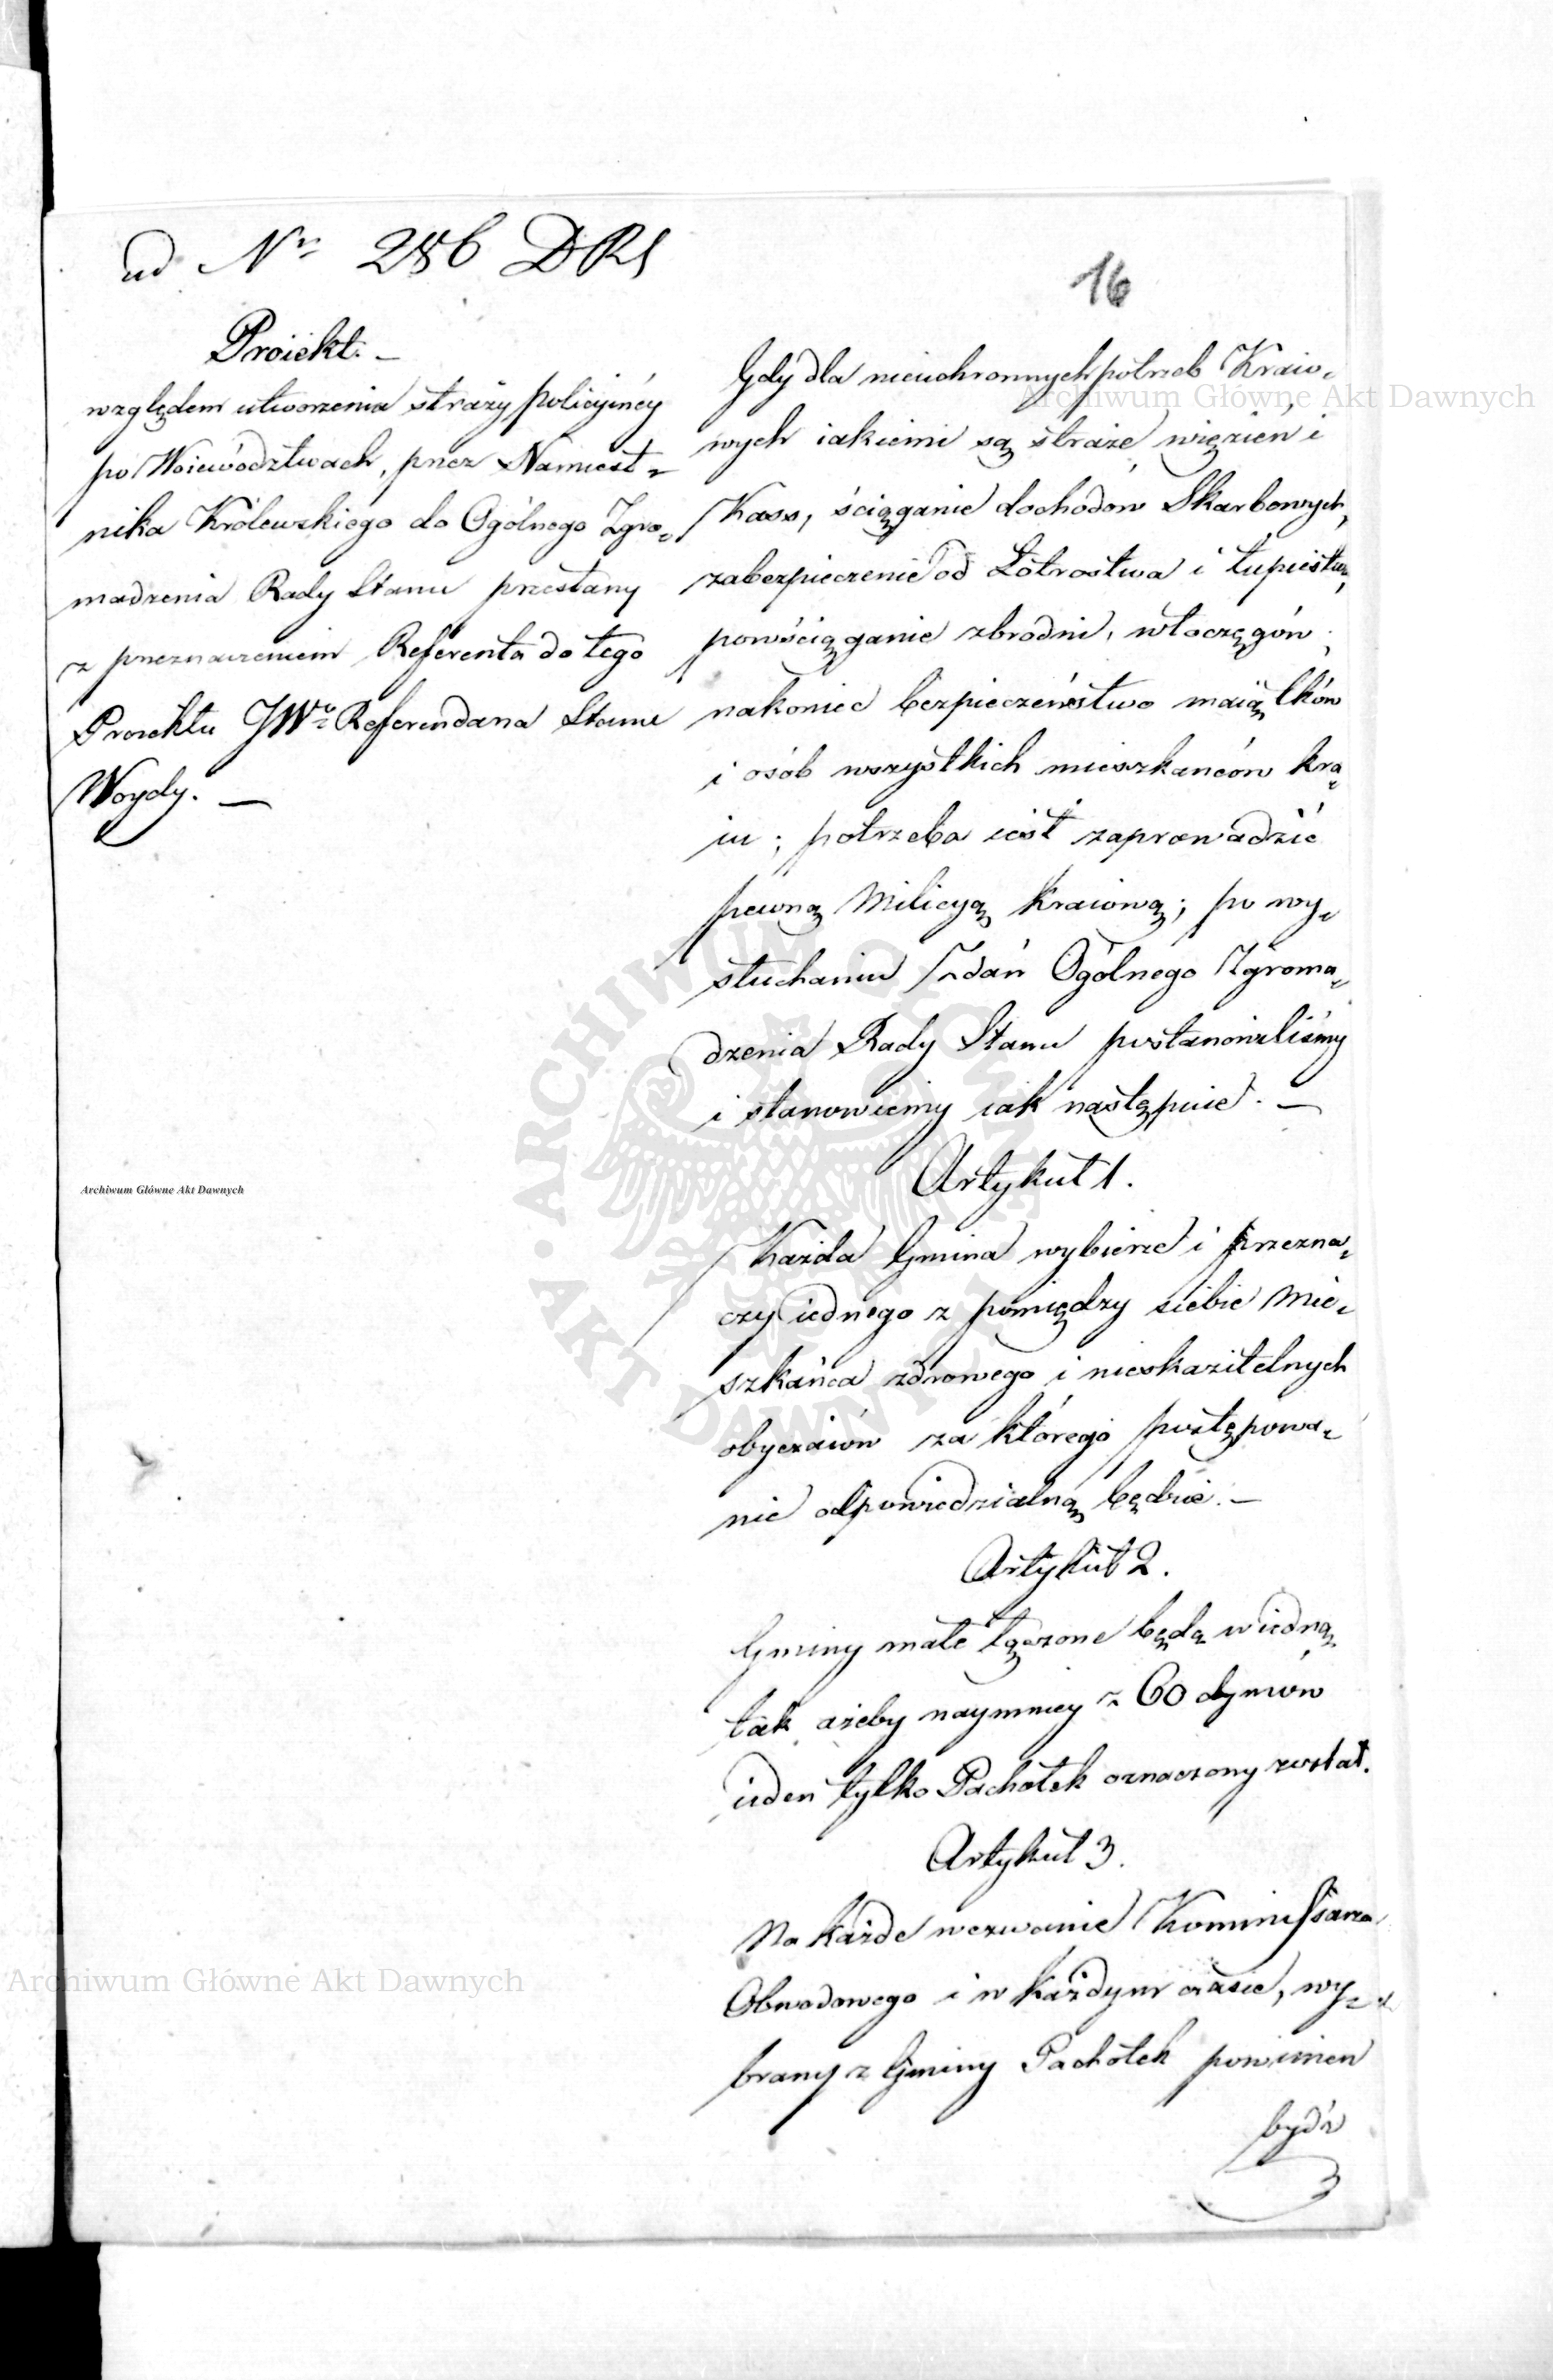 ad Nrı 286 DRS
16
Proiekt. —
względem utworzenia straży policyinéy
po Woiewództwach, przez Namiest-
nika Królewskiego do Ogólnego Zgro-
madzenia Rady Stanu przesłany
z przeznaczeniem Referenta do tego
Proiektu JWo Referendarza Stanu
Woydy. —
Gdy dla nieuchronnych potrzeb Kraio-
wych iakiemi są straże więzień i
Kass, ściąganie dochodów Skarbowych,
zabezpieczenie od Łotrostwa i łupiestwa,
powściąganie zbrodni, włóczęgów,
nakoniec bezpieczeństwo maiątków
i osób wszystkich mieszkańców kra-
iu; potrzeba iest zaprowadzić
pewną Milicyą kraiową; po wy-
słuchaniu Zdań Ogólnego Zgroma-
dzenia Rady Stanu postanowiliśmy
i stanowiemy iak następuie. —
Artykuł 1.
Każda Gmina wybierze i przezna-
czy iednego z pomiędzy siebie Mie-
szkańca zdrowego i nieskazitelnych
obyczaiów za którego postępowa-
nie odpowiedzialną będzie. —
Artykuł 2.
Gminy małe łączone będą w iedną
tak ażeby naymniey z 60 dymów
ieden tylko Pachołek oznaczony został.
Artykuł 3.
Na każde wezwanie Kommissarza
Obwodowego i w każdym czasie, wy-
brany z Gminy Pachołek powinien
bydź
Archiwum Główne Akt Dawnych
Archiwum Główne Akt Dawnych
Archiwum Główne Akt Dawnych
ARCHIWUM GŁÓWNE AKT DAWNYCH